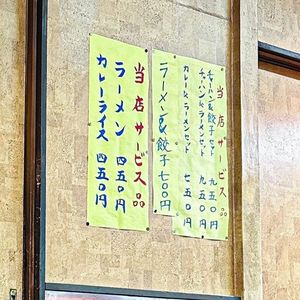 当店サービス品
チャーハン&餃子セット 九五〇円
チャーハン&ラーメンセット 九五〇円
カレー&ラーメンセット 七五〇円
ラーメン&餃子 七〇〇円
当店サービス品
ラーメン 四五〇円
カレーライス 四五〇円